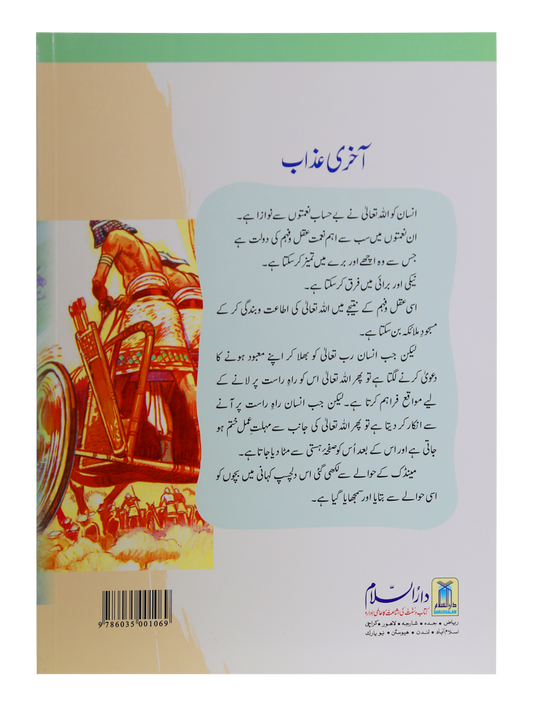 آخری عذاب
انسان کو اللہ تعالیٰ نے بے حساب نعمتوں سے نوازا ہے۔
ان نعمتوں میں سب سے اہم نعمت عقل و فہم کی دولت ہے
جس سے وہ اچھے اور برے میں تمیز کر سکتا ہے۔
نیکی اور برائی میں فرق کر سکتا ہے۔
اسی عقل و فہم کے نتیجے میں اللہ تعالیٰ کی اطاعت و بندگی کر کے
مسجودِ ملائکہ بن سکتا ہے۔
لیکن جب انسان رب تعالیٰ کو بھلا کر اپنے معبود ہونے کا
دعویٰ کرنے لگتا ہے تو پھر اللہ تعالیٰ اس کو راہِ راست پر لانے کے
لیے مواقع فراہم کرتا ہے۔ لیکن جب انسان راہِ راست پر آنے
سے انکار کر دیتا ہے تو پھر اللہ تعالیٰ کی جانب سے مہلتِ عمل ختم ہو
جاتی ہے اور اس کے بعد اُس کو صفحۂ ہستی سے مٹا دیا جاتا ہے۔
مینڈک کے حوالے سے لکھی گئی اس دلچسپ کہانی میں بچوں کو
اسی حوالے سے بتایا اور سمجھایا گیا ہے۔
دارالسلام
DARUSSALAM
دارُالسّلام
کتاب و سنت کی اشاعت کا عالمی ادارہ
ریاض • جدہ • شارجہ • لاہور • کراچی
اسلام آباد • لندن • ہیوسٹن • نیو یارک
9 786035 001069